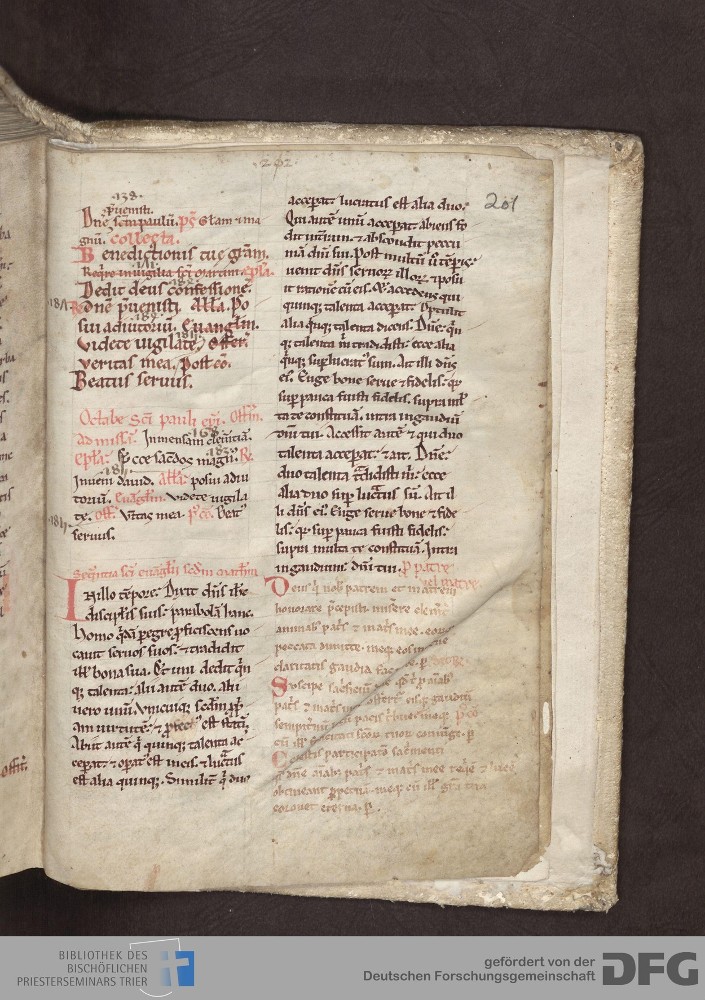 ·202·
201
·138·
p̄uenisti.
Dn̄e sc̄m paulū. p̄s Gl̄am ⁊ ma
gnū. collecta.
Benedictionis tue gr̄am.
Req̄re in uigilia sc̄i martini. ep̄la.
Dedit deus confessione.
Dn̄e p̄uenisti. All̄a. Po
sui adiutoriū. Euangl̄m.
Videte uigilate. Offer̄.
Veritas mea. Post cō.
Beatus seruus.
Octabe Sc̄i pauli ep̄i. Off̄m.
ad miss̄. Inmensam clem̄tiā.
ep̄la. Ecce sac̄dos magn᷒. R̄.
Inueni dauid. All̄a. posui adiu
toriū. Euangl̄m. Videte uigila
te. Off̄. Veritas mea. p̄ cō. Beat᷒
seruus.
Seq̄ntia sc̄i euāgl̄ii sc̄dm math̄m
In illo tēpore. Dixit dn̄s ih̄c
discipl̄is suis. parabolā hanc.
homo q̄dā peregre p̄ficiscens uo
cauit seruos suos. ⁊ tradidit
ill̄ bona sua. Et uni dedit q̄n
q; talenta. alii autē duo. alii
uero unū. Vnicuiq; sc̄dm p̄p̄
am uirtutē. ⁊ p̄fect᷒ est statī.
Abiit autē q̄ quinq; talenta ac
cepat. ⁊ opat᷒ est in eis. ⁊ lucratus
est alia quinq;. Similit̄ q̄ duo
accepat. lucratus est alia duo.
Qui autē unū accepat. abiens fo
dit in t̄ram. ⁊ abscondit peccu
niā dn̄i sui. Post multū u̅ tēp̄is
uenit dn̄s seruoꝝ illoꝝ. ⁊ posu
it rationē cū eis. Et accedens qui
quinq; talenta accepat. optulit
alia q̄nq; talenta dicens. Dn̄e. q̄n
q; talenta m̄ tradidisti. ecce alia
q̄nq; suplucrat᷒ sum. Ait illi dn̄s
ei᷒. Euge bone serue ⁊ fidelis. q̄
sup pauca fuisti fidelis. supra mĺ
ta te constituā. intra in gaudiū
dn̄i tui. Accessit autē ⁊ qui duo
talenta accepat. ⁊ ait. Dn̄e.
duo talenta tradidisti m̄. ecce
alia duo sup lucratus sū. Ait il
li dn̄s ei᷒. Euge serue bone ⁊ fide
lis. q̄ sup pauca fuisti fidelis.
supra multa te constituā. Intra
in gaudium dn̄i tui. p̄ patre
uel matre.
Deus q̄ nob̄ patrem et matrem
honorare p̄cepisti. miserere clem̄t̄
animab᷒ pat̄s ⁊ mat̄s mee. eorūq;
peccata dimitte. meq; eos in et̄ne
claritatis gaudia fac
Suscipe sac̄ficium
pat̄s ⁊ mat̄s mee offero. eisq; gaudiū
sempitnū
cū ill̄
Celestis participatio sac̄menti
q̄s dn̄e aīab᷒ pat̄s ⁊ mat̄s mee requiē ⁊ lucē
obtineat perpetuā. meq; cū ill̄ gr̄a tua
coronet eterna. p̄.
BIBLIOTHEK DES
BISCHÖFLICHEN
PRIESTERSEMINARS TRIER
gefördert von der
Deutschen Forschungsgemeinschaft
DFG